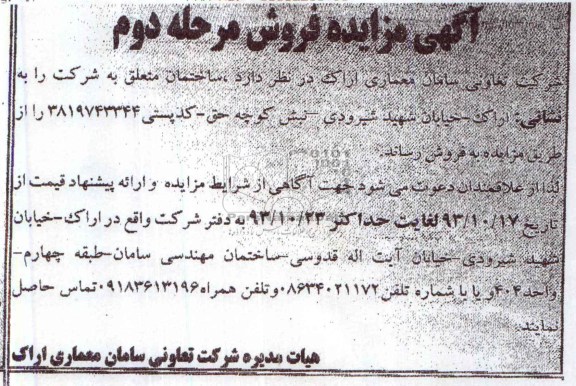 آگهی مزایده فروش مرحله دوم
شرکت تعاونی سامان معماری اراک در نظر دارد ،ساختمان متعلق به شرکت را به
نشانی: اراک-خیابان شهید شیرودی -نبش کوچه حق-کدپستی ۳۸۱۹۷۴۳۳۴۴ را از
طریق مزایده به فروش رساند.
لذا از علاقمندان دعوت می شود جهت آگاهی از شرایط مزایده و ارائه پیشنهاد قیمت از
تاریخ ۹۳/۱۰/۱۷ لغایت حداکثر ۹۳/۱۰/۲۳ به دفتر شرکت واقع در اراک-خیابان
شهید شیرودی-خیابان آیت اله قدوسی-ساختمان مهندسی سامان-طبقه چهارم-
واحد۴۰۴ و یا با شماره تلفن ۰۸۶۳۴۰۲۱۱۷۲ وتلفن همراه ۰۹۱۸۳۶۱۳۱۹۶ تماس حاصل
نمایند.
هیات مدیره شرکت تعاونی سامان معماری اراک